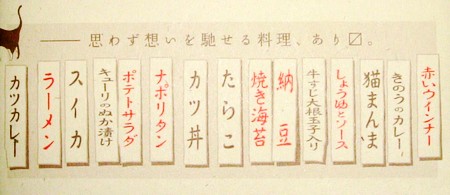 思わず想いを馳せる料理、あり〼。
赤いウインナー
きのうのカレー
猫まんま
しょうゆとソース
牛すじ大根玉子入り
納豆
焼き海苔
たらこ
カツ丼
ナポリタン
ポテトサラダ
キューリのぬか漬け
スイカ
ラーメン
カツカレー